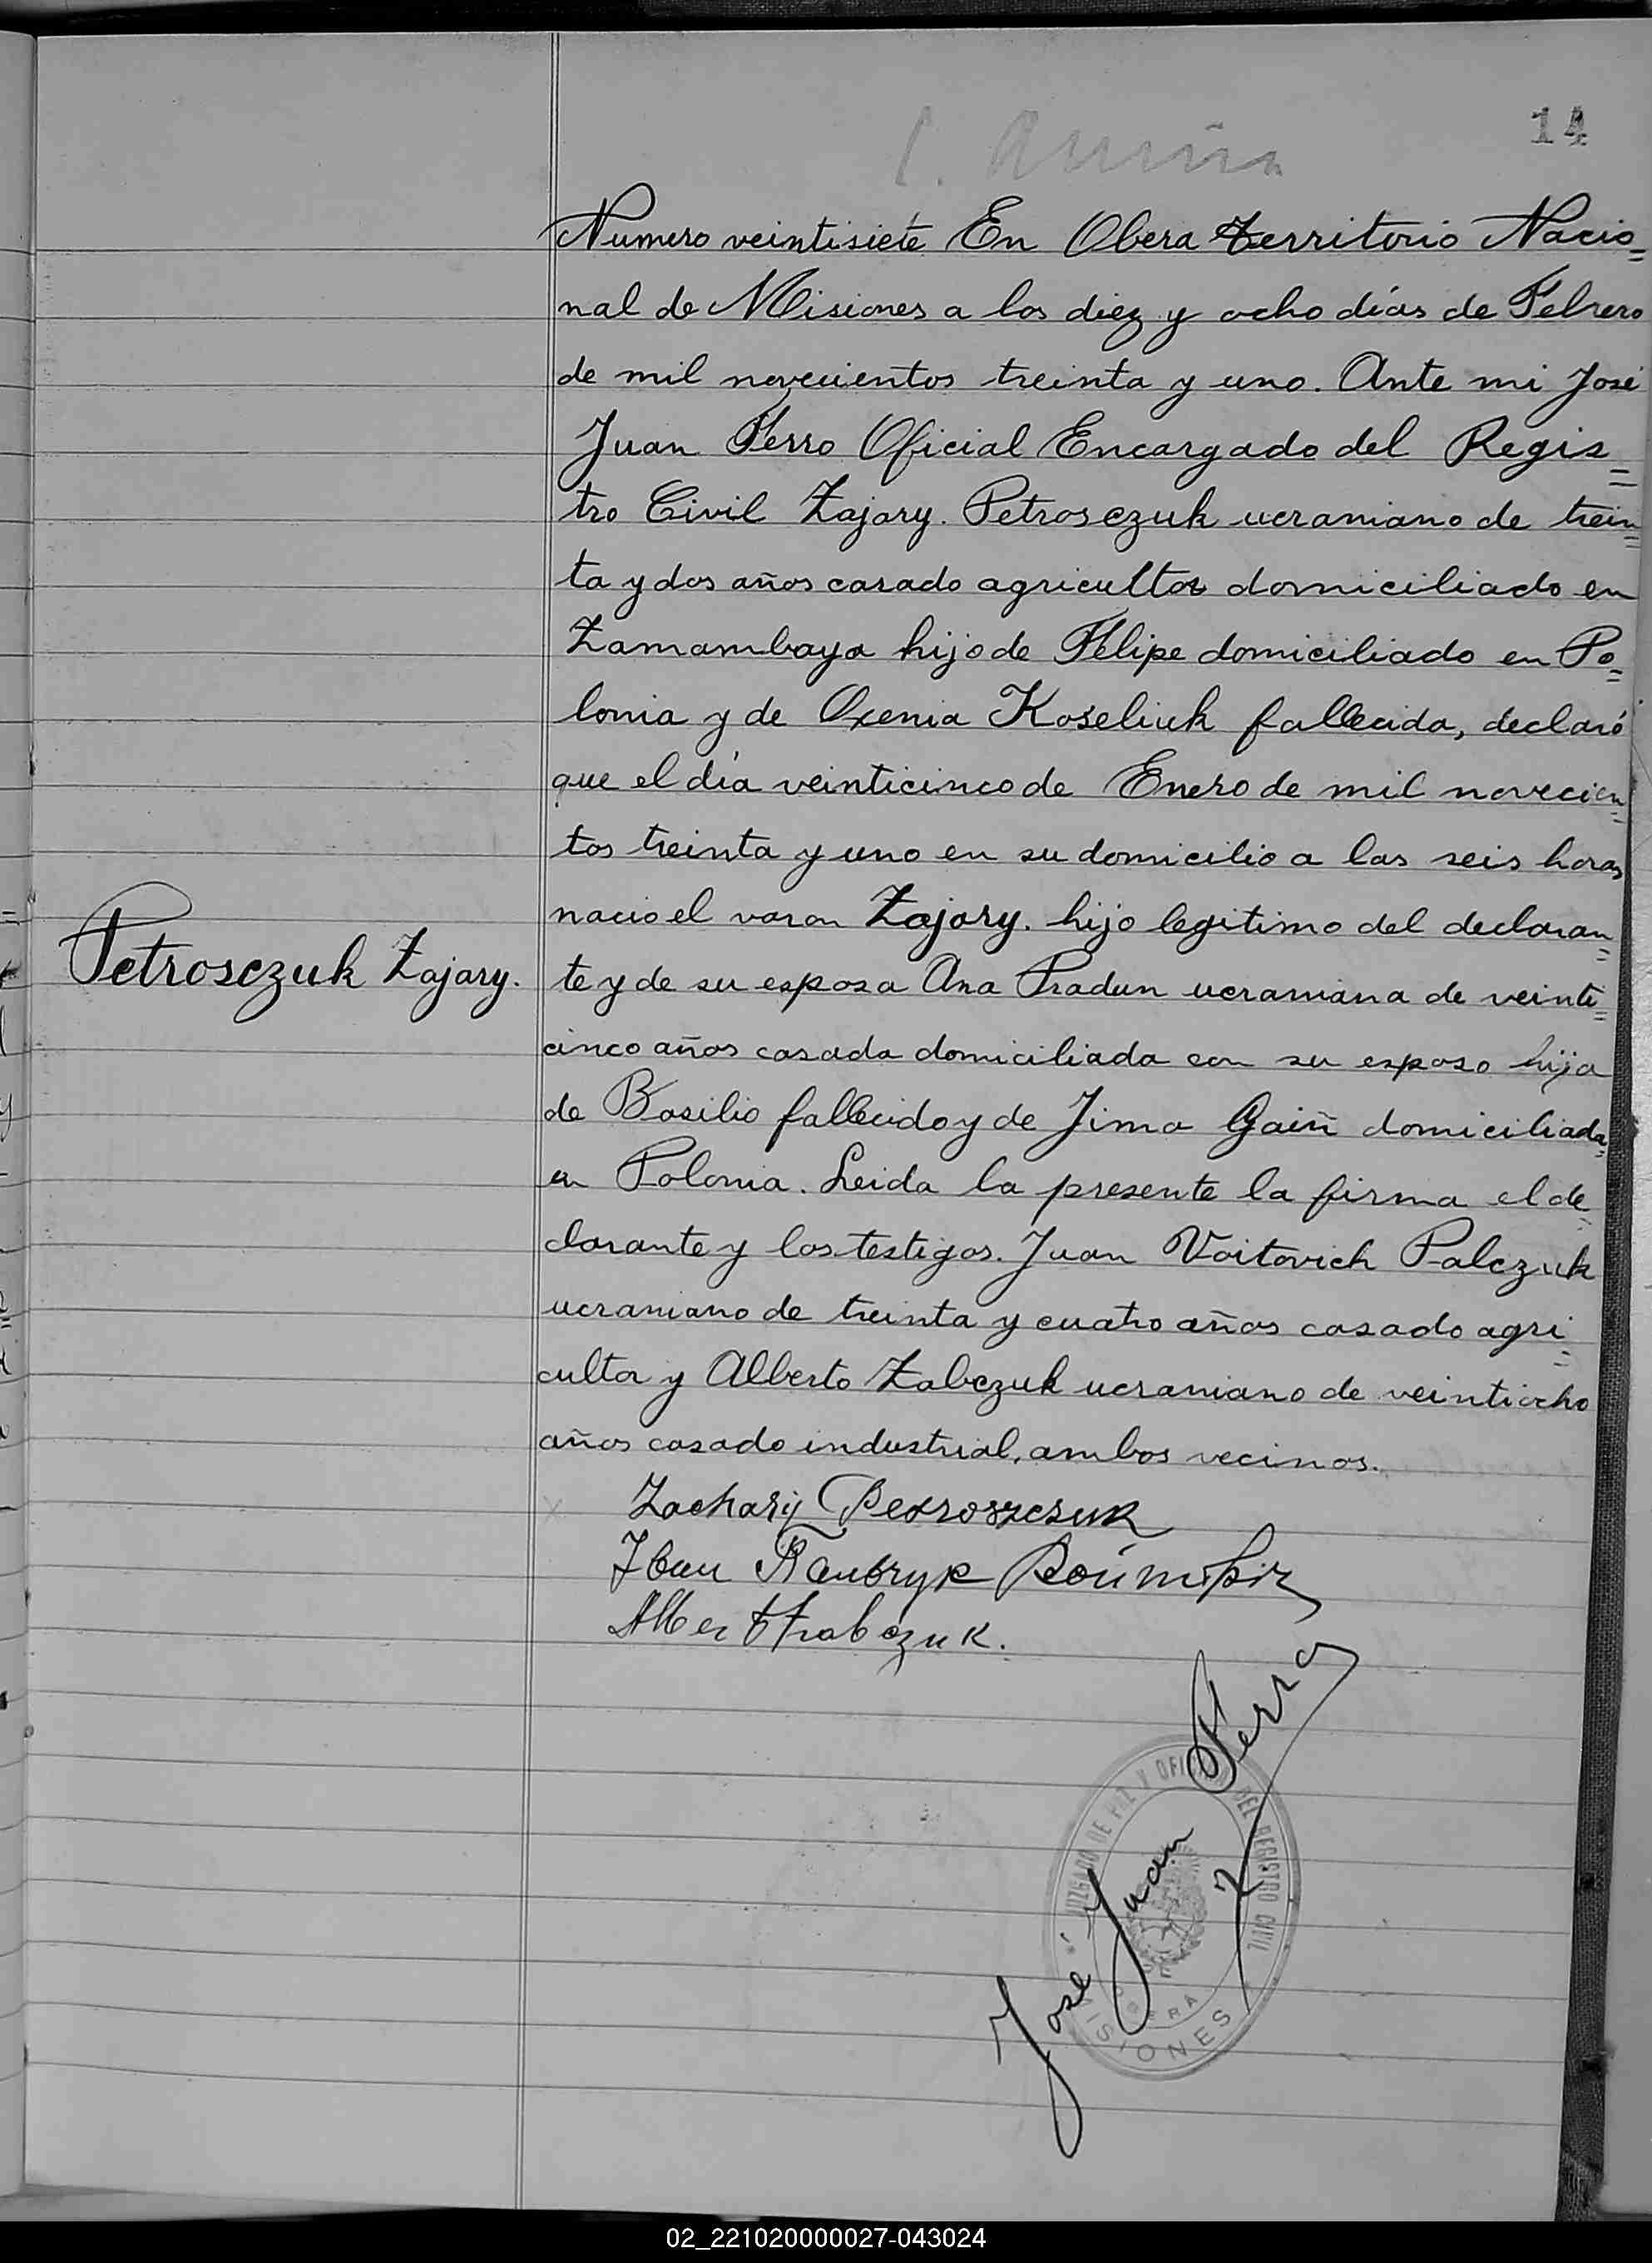 14
Numero veintisiete En Obera Territorio Nacio=
nal de Misiones a los diez y ocho días de Febrero
de mil novecientos treinta y uno. Ante mi José
Juan Ferro Oficial Encargado del Regis=
tro Civil Zajary. Petrosczuk ucraniano de trein=
ta y dos años casado agricultor domiciliado en
Zamambaya hijo de Felipe domiciliado en Po=
lonia y de Oxenia Koseliuk fallecida, declaró
que el día veinticinco de Enero de mil novecien=
tos treinta y uno en su domicilio a las seis horas
nacio el varon Zajary. hijo legitimo del declaran=
Petrosczuk Zajary.
te y de su esposa Ana Pradun ucraniana de veinti=
cinco años casada domiciliada con su esposo hija
de Basilio fallecido y de Jima Gaiñ domiciliada
en Polonia. Leida la presente la firma el de=
clarante y los testigos. Juan Voitovich Palczuk
ucraniano de treinta y cuatro años casado agri=
cultor y Alberto Zabczuk ucraniano de veintiocho
años casado industrial, ambos vecinos.
Zacharij Petroszczuk
Albert Hrabczuk.
José Juan Ferro
JUZGADO DE PAZ Y OFICINA DEL REGISTRO CIVIL
OBERA
MISIONES
02_221020000027-043024